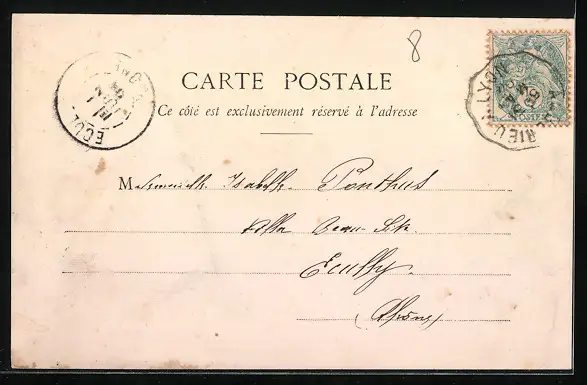 8
CARTE POSTALE
Ce côté est exclusivement réservé à l'adresse
Mademoiselle Isabelle Ponthus
Villa Beau-Site
Ecully
(Rhône)
LYON
POSTES